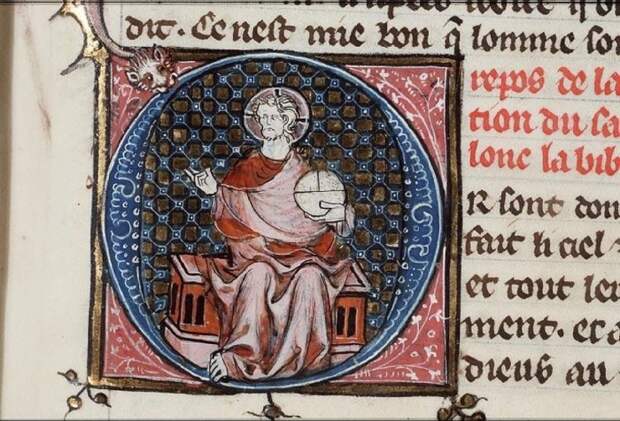 dit. Ce nest mie bon q̃ lomme
repos de la
tion du sa
lonc la bib
OR sont
fait li ciel
et tout
ment.
dieus au